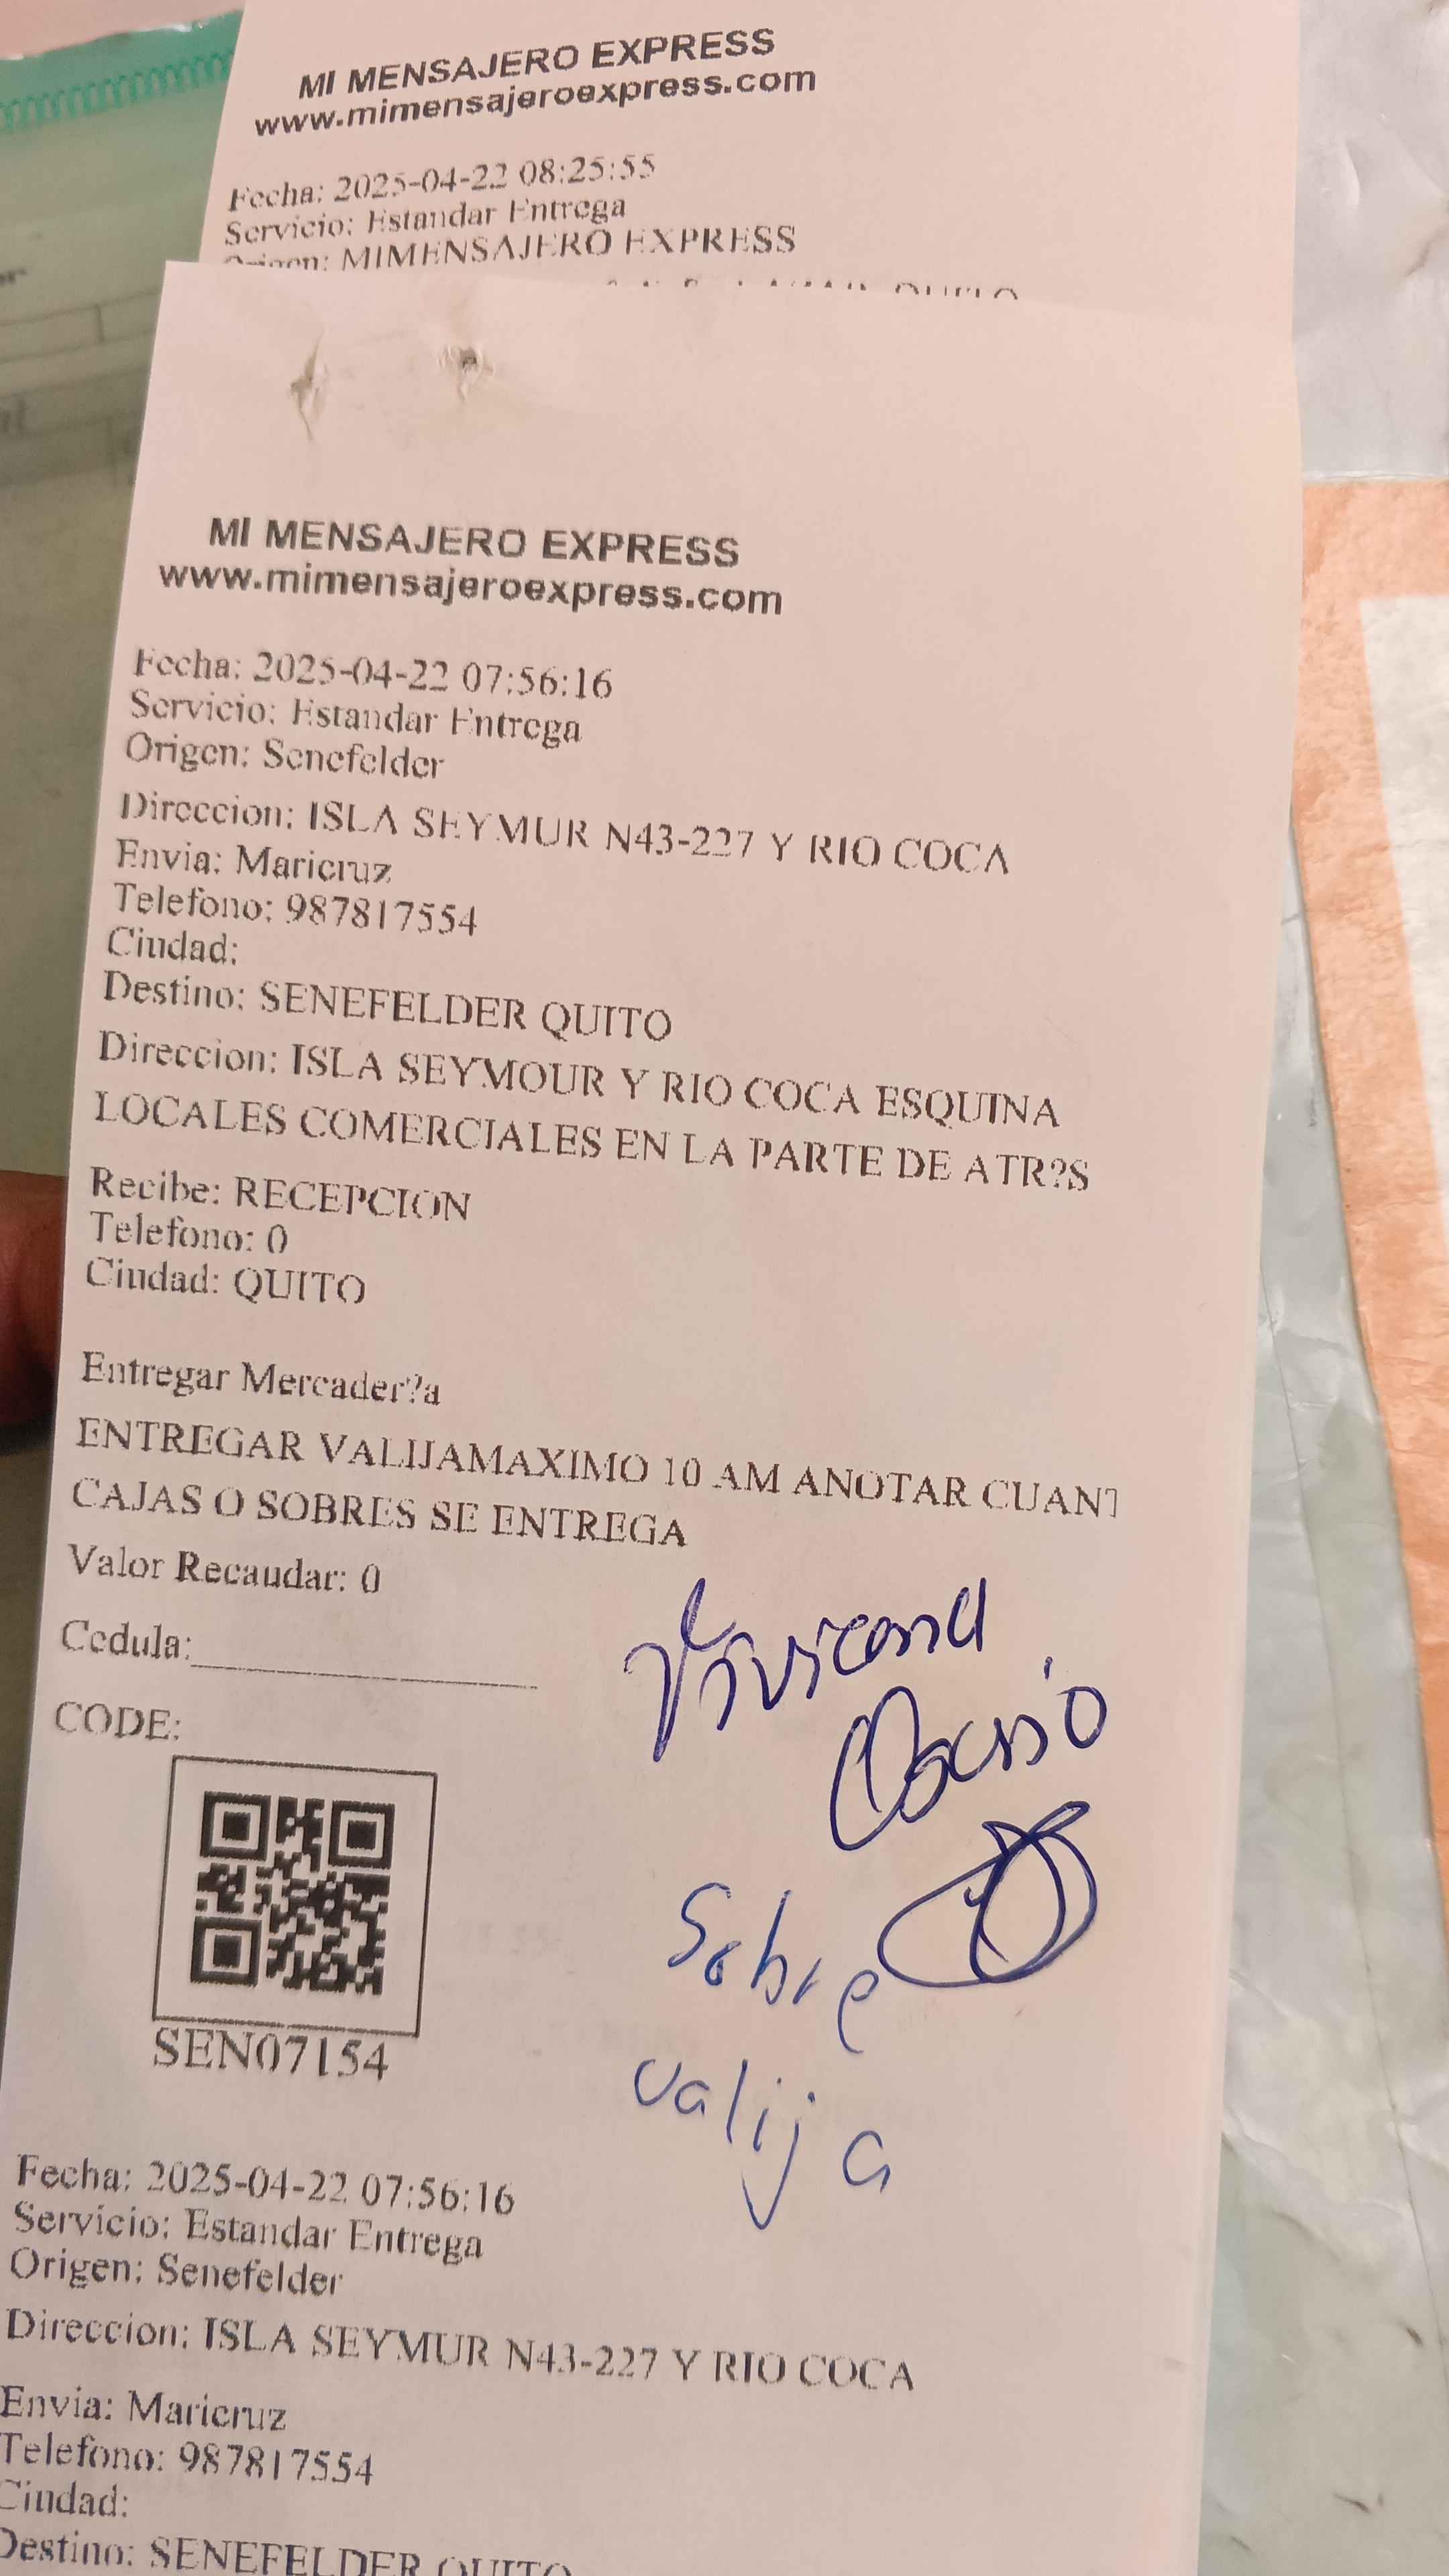 MI MENSAJERO EXPRESS
www.mimensajeroexpress.com
Fecha: 2025-04-22 08:25:55
Servicio: Estandar Entrega
Origen: MIMENSAJERO EXPRESS
MI MENSAJERO EXPRESS
www.mimensajeroexpress.com
Fecha: 2025-04-22 07:56:16
Servicio: Estandar Entrega
Origen: Senefelder
Direccion: ISLA SEYMUR N43-227 Y RIO COCA
Envia: Maricruz
Telefono: 987817554
Ciudad:
Destino: SENEFELDER QUITO
Direccion: ISLA SEYMOUR Y RIO COCA ESQUINA
LOCALES COMERCIALES EN LA PARTE DE ATR?S
Recibe: RECEPCION
Telefono: 0
Ciudad: QUITO
Entregar Mercader?a
ENTREGAR VALIJAMAXIMO 10 AM ANOTAR CUANT
CAJAS O SOBRES SE ENTREGA
Valor Recaudar: 0
Cedula:
Viviana
CODE:
Sobre
SEN07154
valija
Fecha: 2025-04-22 07:56:16
Servicio: Estandar Entrega
Origen: Senefelder
Direccion: ISLA SEYMUR N43-227 Y RIO COCA
Envia: Maricruz
Telefono: 987817554
Ciudad:
Destino: SENEFELDER QUITO